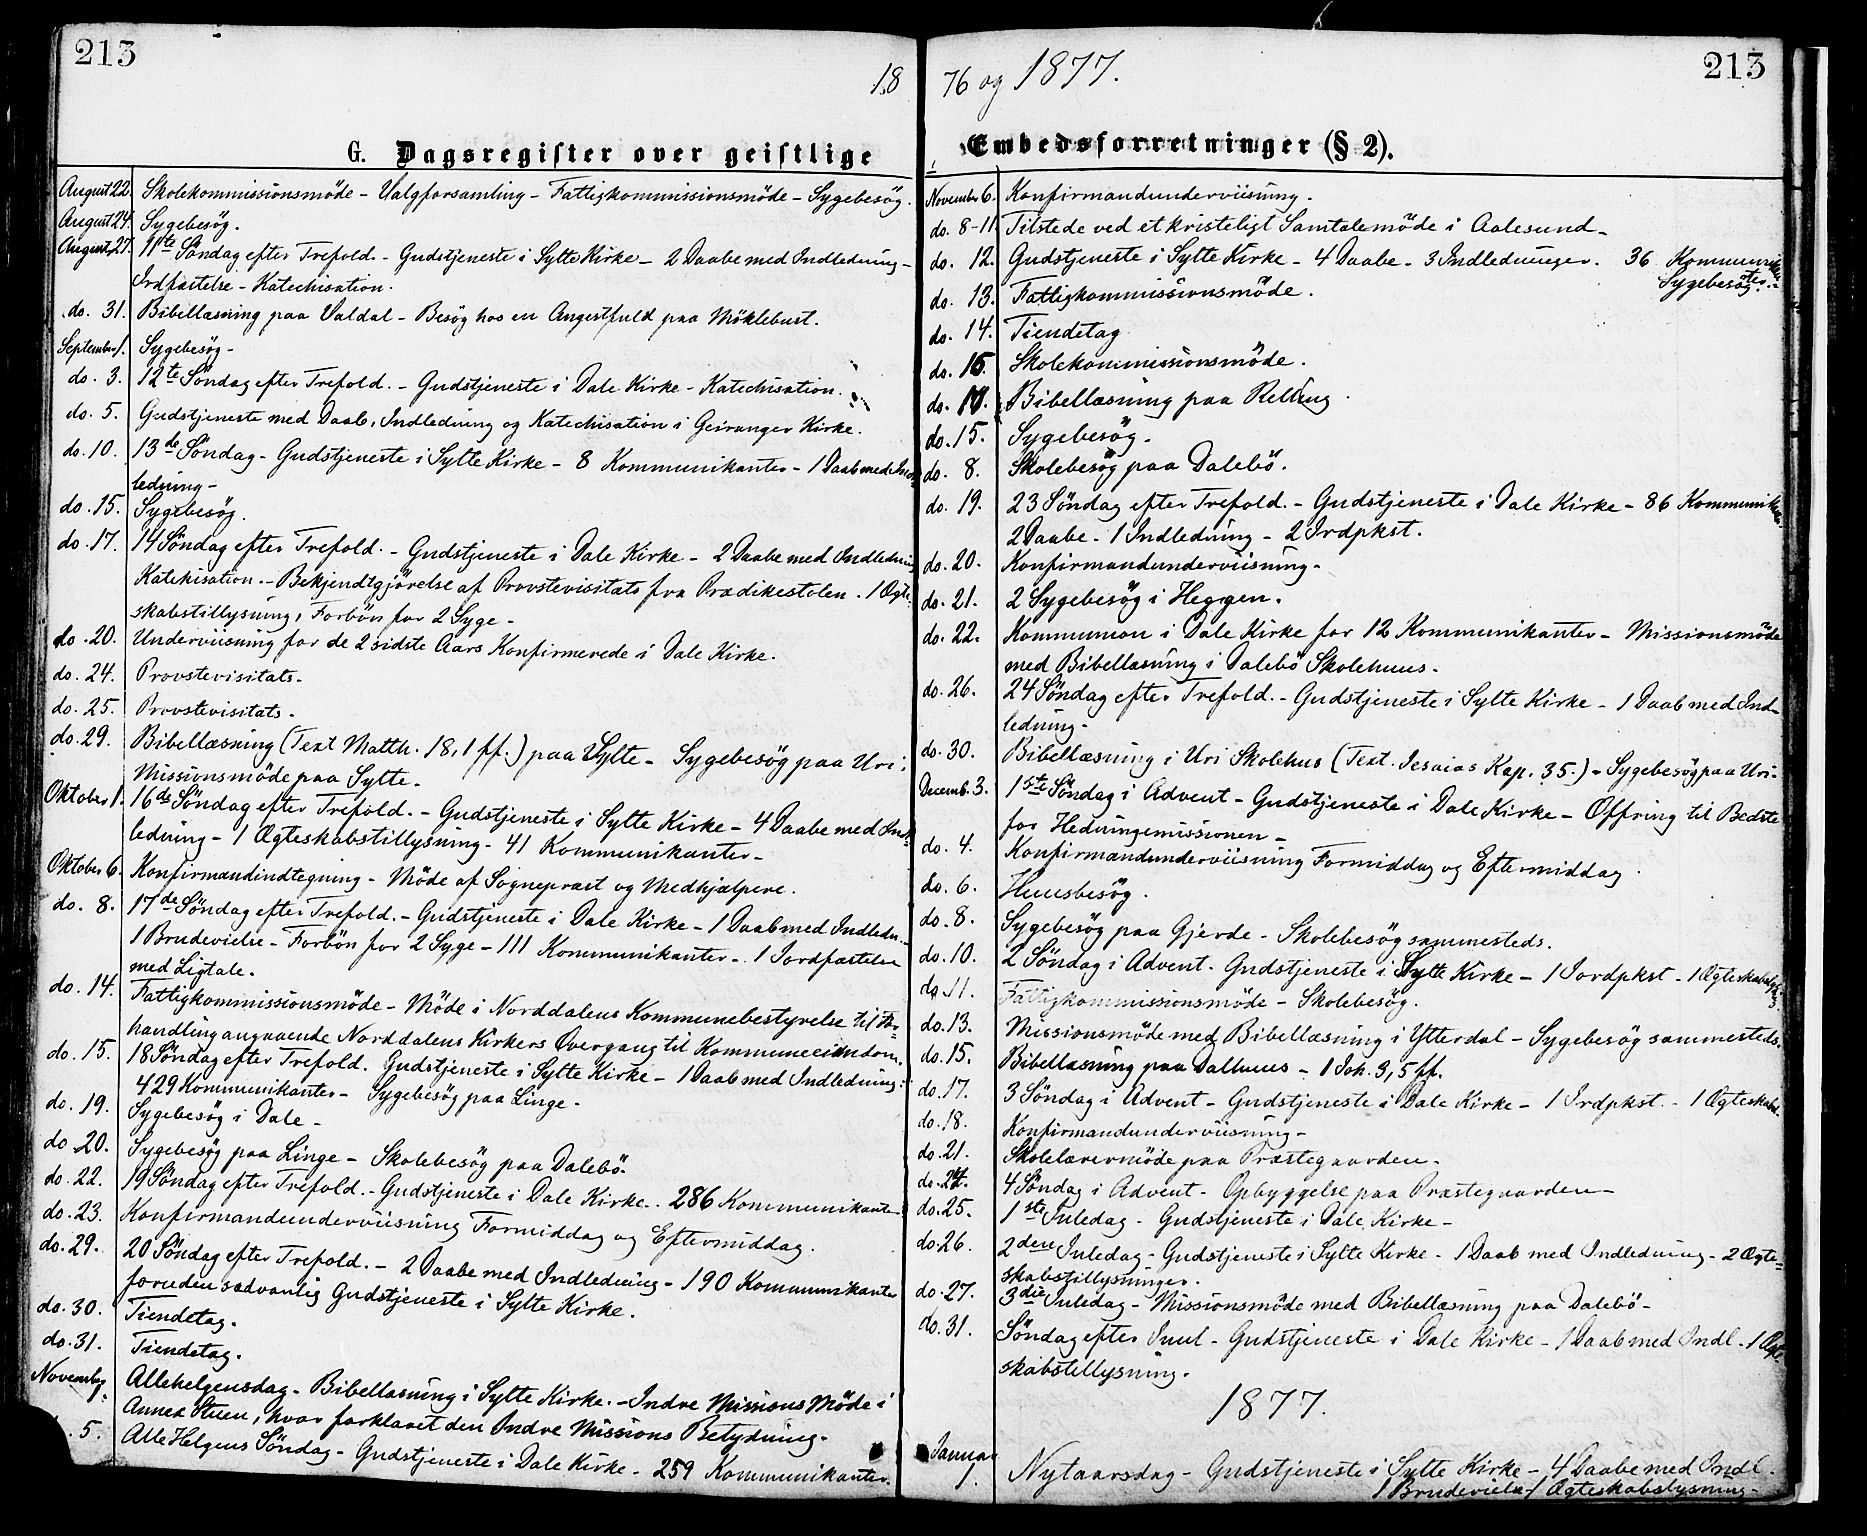 213
18
G. Dagsregister over geistlige
August 22. Skolekommissionsmöde – Valgforsamling – Fattigkommissionsmöde – Sygebesög.
August 24. Sygebesög.
August 27. 11te Söndag efter Trefold. – Gudstjeneste i Sylte Kirke – 2 Daabe med Indledning –
Jrdfæstelse – Katechisation.
do. 31. Bibellæsning paa Valdal – Besög hos en Angestfuld paa Möklebust.
September 1. Sygebesög –
do. 3. 12te Söndag efter Trefold. – Gudstjeneste i Dale Kirke – Katechisation.
do. 5. Gudstjeneste med Daab, Indledning og Katechisation i Geiranger Kirke.
do. 10. 13de Söndag – Gudstjeneste i Sylte Kirke – 8 Kommunikanter – 1 Daab med Ind=
ledning –
do. 15. Sygebesög.
do. 17. 14 Söndag efter Trefold. – Gudstjeneste i Dale Kirke – 2 Daabe med Indledning
Katekisation. – Bekjendtgjörelse af Provstevisitats fra Prædikestolen. 1 Ægte=
skabstillysning, Forbön for 2 Syge –
do. 20. Underviisning for de 2 sidste Aars Konfirmerede i Dale Kirke.
do. 24. Provstevisitats –
do. 25. Provstevisitats –
do. 29. Bibellæsning (Text Matth. 18, 1 ff.) paa Sylte – Sygebesög paa Uri,
Missionsmöde paa Sylte –
Oktober 1. 16de Söndag efter Trefold. – Gudstjeneste i Sylte Kirke – 4 Daabe med Ind=
ledning – 1 Ægteskabstillysning – 41 Kommunikanter –
Oktober 6. Konfirmandindtegning – Möde af Sognepræst og Medhjælpere.
do. 8. 17de Söndag efter Trefold. – Gudstjeneste i Dale Kirke – 1 Daab med Indledn. –
1 Brudevielse – Forbön for 2 Syge – 111 Kommunikanter – 1 Jordfæstelse
med Ligtale.
do. 14. Fattigkommissionsmöde – Möde i Norddalens Kommunebestyrelse til
handling angaaende Norddalens Kirkers Overgang til Kommuneeiendom.
do. 15. 18 Söndag efter Trefold. Gudstjeneste i Sylte Kirke – 1 Daab med Indledning:
429 Kommunikanter – Sygebesög paa Linge –
do. 19. Sygebesög i Dale –
do. 20. Sygebesög paa Linge – Skolebesög paa Dalebö.
do. 22. 19 Söndag efter Trefold. – Gudstjeneste i Dale Kirke. 286 Kommunikanter
do. 23. Konfirmandunderviisning Formiddag og Eftermiddag.
do. 29. 20 Söndag efter Trefold. – 2 Daabe med Indledning – 190 Kommunikanter
foruden sædvanlig Gudstjeneste i Sylte Kirke.
do. 30. Tiendetag.
do. 31. Tiendetag.
November 1. Allehelgensdag – Bibellæsning i Sylte Kirke. – Indre Missions Möde i
Annex Stuen, hvor forklaret den Indre Missions Betydning –
5. Alle Helgens Söndag – Gudstjeneste i Dale Kirke – 259 Kommunikanter.
76 og 1877.
213
Embedsforretninger (§ 2).
November 6. Konfirmandunderviisning.
do. 8–11. Tilstede ved et kristeligt Samtalemöde i Aalesund –
do. 12. Gudstjeneste i Sylte Kirke – 4 Daabe – 3 Indledninger. 36 Kommunikan
ter.
do. 13. Fattigkommissionsmöde. Sygebesög.
do. 14. Tiendetag
do. 15. Skolekommissionsmöde.
do. 17. Bibellæsning paa Relling.
do. 15. Sygebesög –
do. 8. Skolebesög paa Dalebö.
do. 19. 23 Söndag efter Trefold. – Gudstjeneste i Dale Kirke – 86 Kommunikan.
2 Daabe – 1 Indledning – 2 Jrdpkst.
do. 20. Konfirmandunderviisning –
do. 21. 2 Sygebesög i Heggen.
do. 22. Kommunion i Dale Kirke for 12 Kommunikanter – Missionsmöde
med Bibellæsning i Dalebö Skolehuus –
do. 26. 24 Söndag efter Trefold. – Gudstjeneste i Sylte Kirke – 1 Daab med Ind=
ledning –
do. 30. Bibellæsning i Uri Skolehus (Text. Jesaias Kap. 35.) – Sygebesög paa Uri.
Decemb. 3. 1ste Söndag i Advent – Gudstjeneste i Dale Kirke – Offring til Bedste
for Hedningemissionen –
do. 4. Konfirmandunderviisning Formiddag og Eftermiddag.
do. 6. Huusbesög.
do. 8. Sygebesög paa Gjerde – Skolebesög sammesteds.
do. 10. 2 Söndag i Advent. Gudstjeneste i Sylte Kirke – 1 Jordpkst – 1 Ægteskabs
do. 11. Fattigkommissionsmöde – Skolebesög.
do. 13. Missionsmöde med Bibellæsning i Ytterdal – Sygebesög sammesteds.
do. 15. Bibellæsning paa Dalhuus – 1 Joh. 3, 5 ff.
do. 17. 3 Söndag i Advent – Gudstjeneste i Dale Kirke – 1 Jrdpkst – 1 Ægteskabs
do. 18. Konfirmandunderviisning –
do. 21. Skolelærermöde paa Præstegaarden –
do. 24. 4 Söndag i Advent – Opbyggelse paa Præstegaarden –
do. 25. 1ste Juledag – Gudstjeneste i Dale Kirke –
do. 26. 2den Juledag – Gudstjeneste i Sylte Kirke – 1 Daab med Indledning – 2 Ægte=
skabstillysninger.
do. 27. 3die Juledag – Missionsmöde med Bibellæsning paa Dalebö –
do. 31. Söndag efter Juul – Gudstjeneste i Dale Kirke – 1 Daab med Indl. 1 Ægte
skabstillysning.
1877.
Januar 1. Nytaarsdag – Gudstjeneste i Sylte Kirke – 4 Daabe med Indl.
1 Brudevielse 1 Ægteskabslysning –